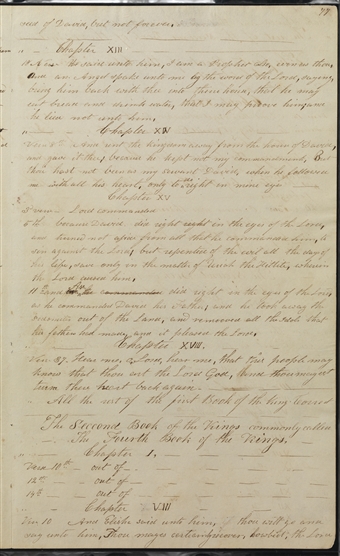 77.
seed of David, but not forever.
Chapter XIII
18 And he said unto him, I am a Prophet also, even as thou,
and an Angel spake unto me by the word of the Lord, saying,
bring him back with thee into thine house, that he may
eat bread and drink water, that I may prove him, and
he lied not unto him,
Chapter XIV
Vers 8th And rent the kingdom away from the house of David,
and gave it thee, because he kept not my commandments, But
thou hast not been as my servant David, when he followed
me with all his heart, only to do right in mine eyes
Chapter XV
Lord commanded
5th because David did right in the eyes of the Lord,
and turned not aside from all that he commanded him, to
sin against the Lord; but repented of the evil all the days of
his life, save only in the matter of Uriah the Hittite, wherein
the Lord cursed him,
11 did right in the eyes of the Lord,
as he commanded David his Father, and he took away the
out of the Land, and removed all the Idols that
his father had made, and it pleased the Lord.
Chapter XVIII.
Ver 37. Hear me, O Lord, hear me, that this people may
know that thou art the Lord God, and thou mayest
turn their heart back again.
All the rest of the first Book of the kings correct
The Seccond Book of the Kings commonly called
The Fourth Book of the Kings.
Chapter 1.
Vers 10th out of
12th out of
14th out of
Chapter VIII
Ver 10 And Elisha said unto him, thou will go and
say unto him, Thou mayest certainly recover, howbeit, the Lord